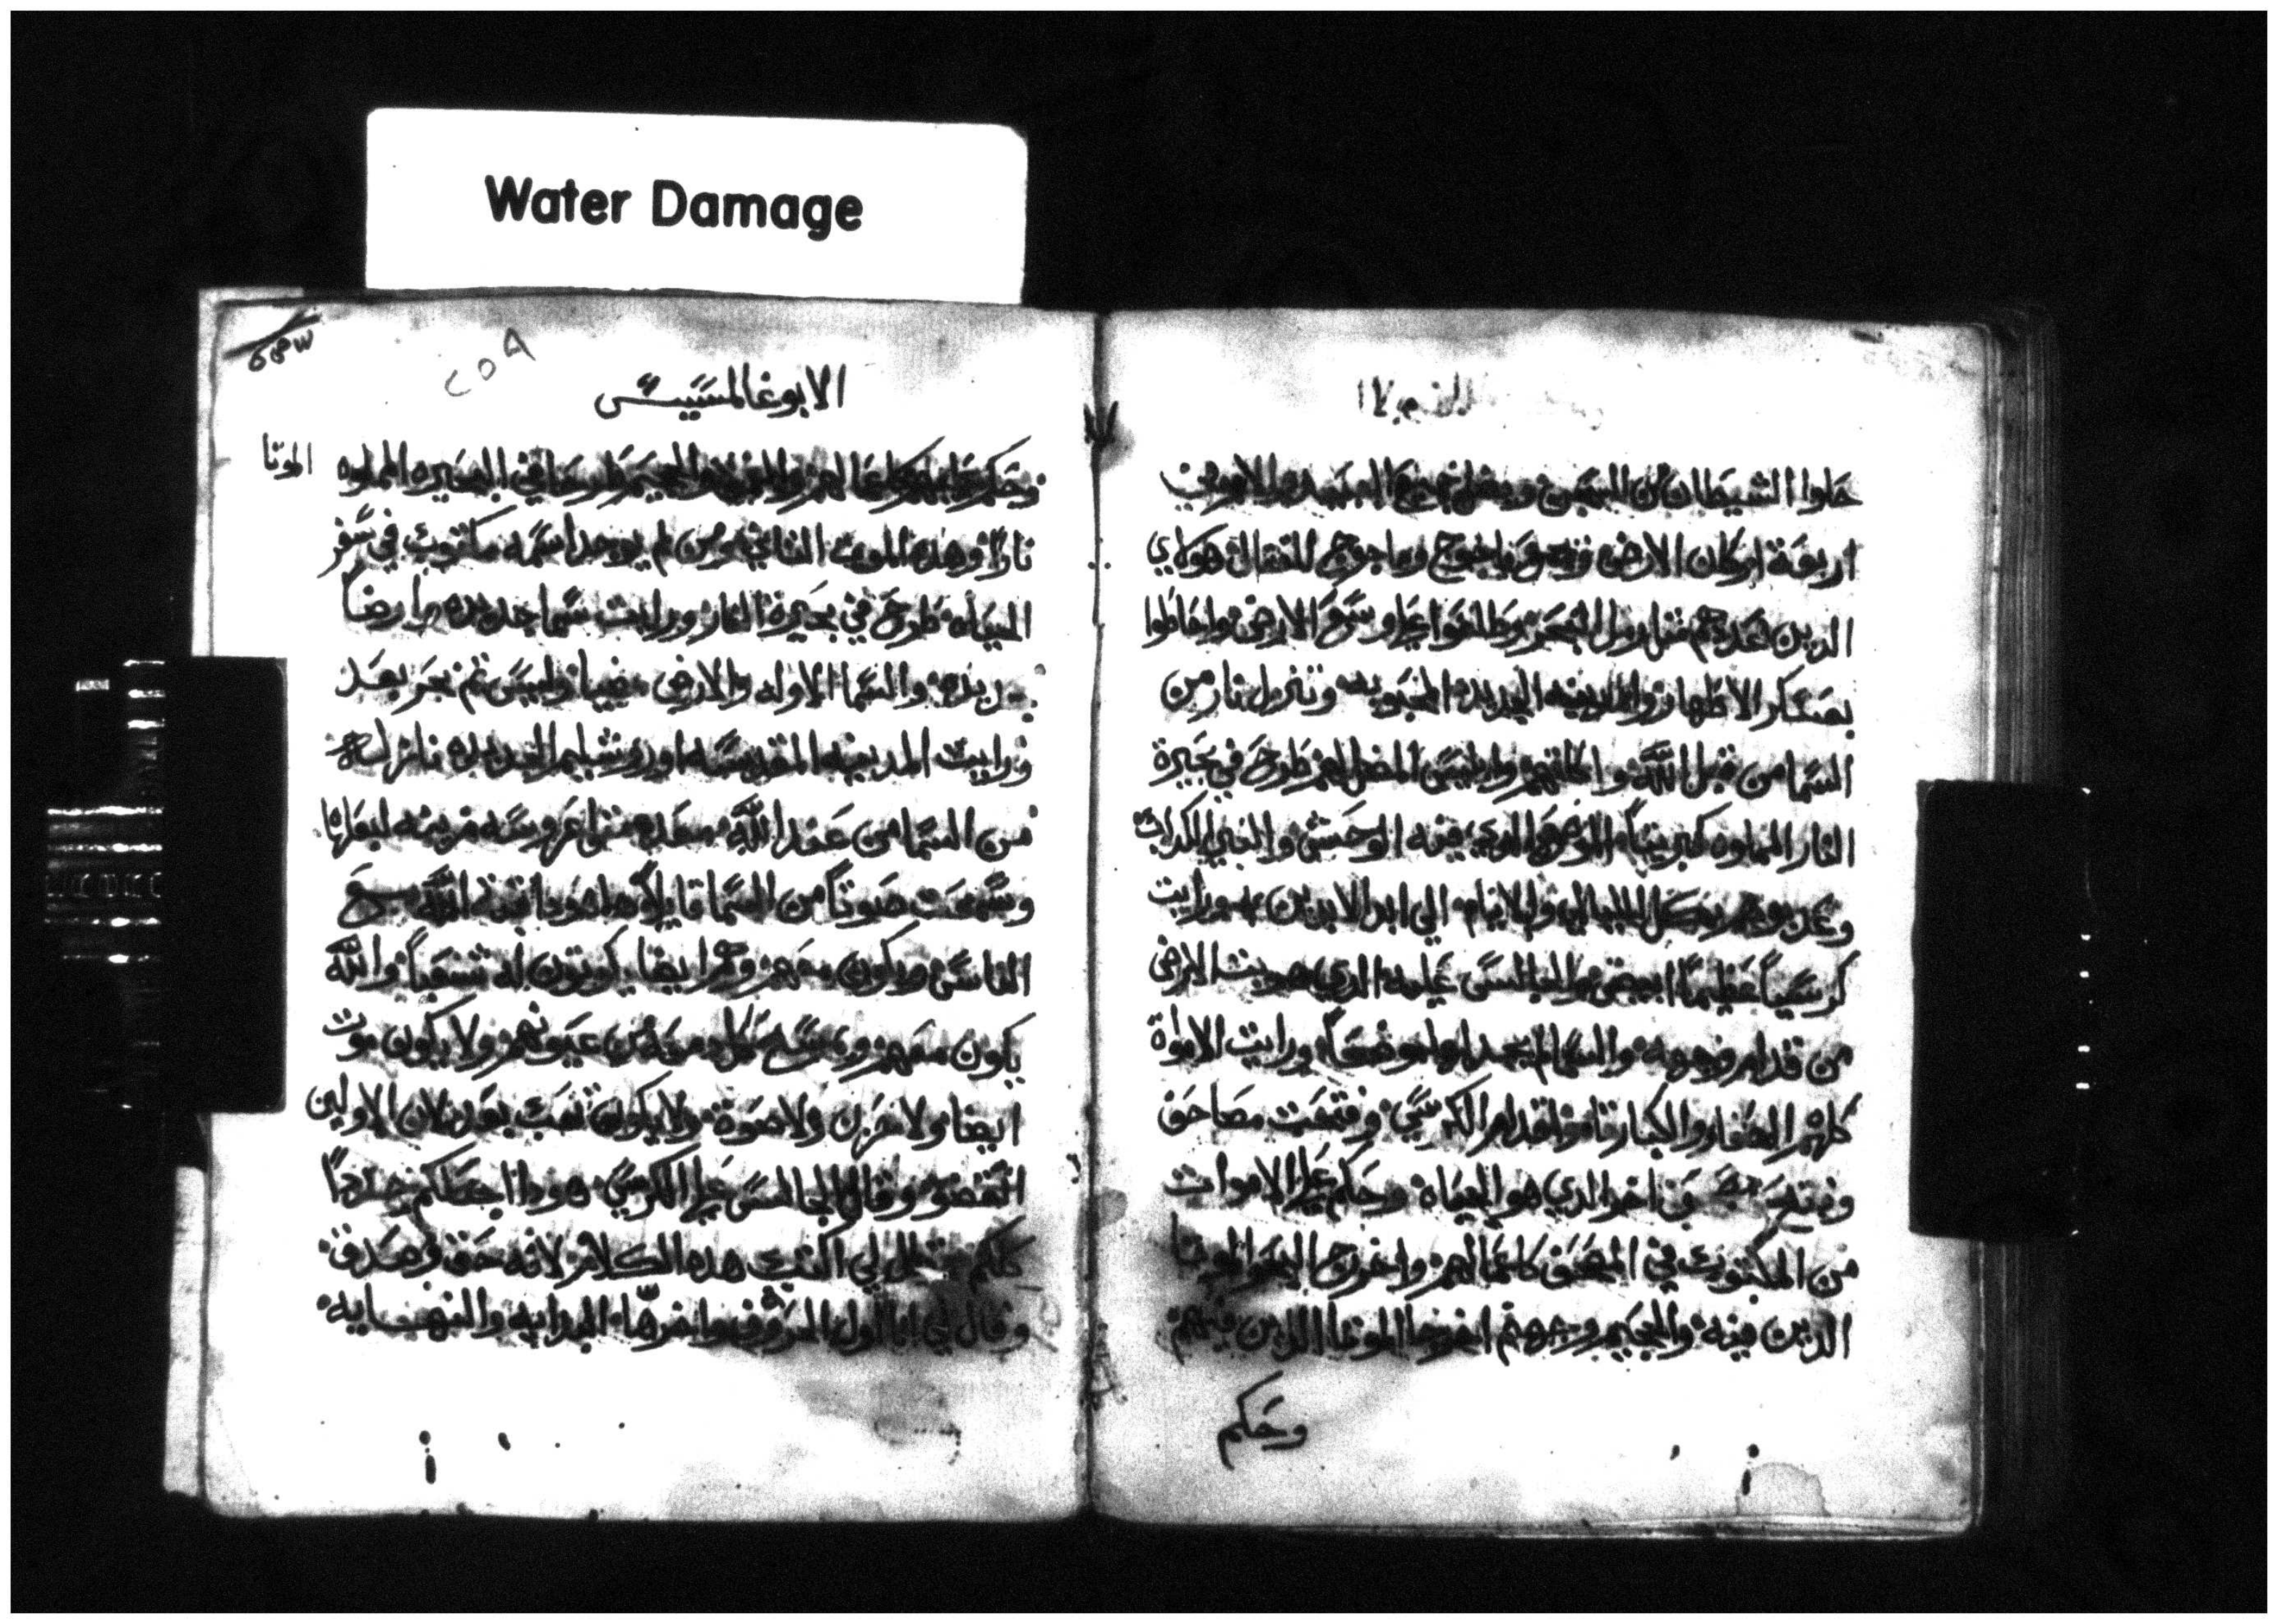 Water Damage
حلوا الشيطان من الحبس ويضل جميع
اربعة اركان الارض وتجمع ياجوج وماجوج للقتال هولاي
الدين عددهم مثل رمل البحر وطلعوا علي وسع الارض واحاطوا
بعسكر الاطهار والمدينه الجديده المحبوبه وتنزل نار من
السما من قبل اللّه واكلتهم وابليس المضل لهم طرح في بحيرة
النار المملوه كبريتاً الموضع الدي فيه الوحش والنبي الكداب
وعن بوهم بكل الليالي والايام الي ابد الابدين ورايت
كرسياً عظيماً ابيض والجالس عليه الدي هربت الارض
من قدام وجهه والسما لم يجد لها موضعاً ورايت الاموات
كلهم الصغار والكبار قاموا قدام الكرسي وفتحت مصاحف
وفتح اخر الدي هو الحياه وحكم علي الاموات
من المكتوب في المصحف كاعمالهم واخرج البحر الموتا
الدين فيه والجحيم وجهنم اخرجوا الموتا الدين فيهم
وحكم
٢٥٩
الابوغالمسيس
وحكم عليهم كاعمالهم والجحيم طرحا في البحيره المملوه
الموتا
ناراً وهده الموت الثاني ومن لم يوجد اسمه مكتوب في سفر
الحياه طرح في بحيرة النار ورايت سما جديده وارضاً
جديده والسما الاوله والارض مضيا وليس ثم بحر بعد
ورايت المدينه المقدسه اورشليم الجديده نازله
من السما من عند اللّه معده مثل عروسه مزينه لبعلها
وسمعت صوتاً من السما قايلاً هاهودا قبة اللّه مع
الناس ويكون معهم وهم ايضا يكونون له شعباً واللّه
يكون معهم ويمسح كل دمعه من عيونهم ولا يكون موت
ايضا ولا حزن ولا صوة ولا يكون تعب بعد لان الاولين
انقضو وقال الجالس علي الكرسي هودا اجعلكم جدداً
كلكم وقال لي اكتب هده الكلام لانه حق وصدق
وقال لي انا اول الحروف واخرها البدايه والنهايه